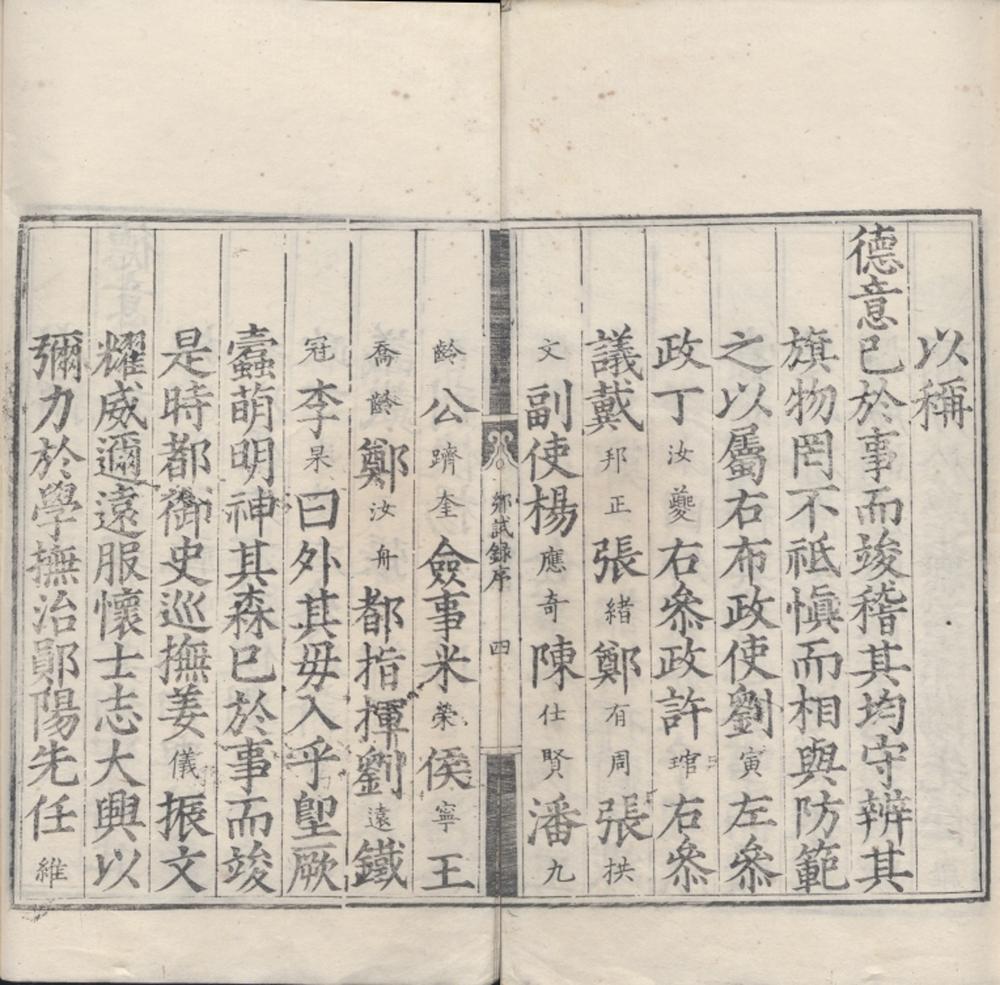 以稱
德意已於事而竣稽其均守辨其
旗物罔不祗慎而相與防範
之以屬右布政使劉寅左叅
政丁汝夔右叅政許琯右叅
議戴邦正張緒鄭有周張拱
文副使楊應奇陳仕賢潘九
鄉試録序
四
齡公躋奎僉事米榮侯寧王
喬齡鄭汝舟都指揮劉遠鐵
冠李杲曰外其毋入乎堲厥
蠹萌明神其森已於事而竣
是時都御史巡撫姜儀振文
耀威邇遠服懷士志大興以
彌力於學撫治鄖陽先任維